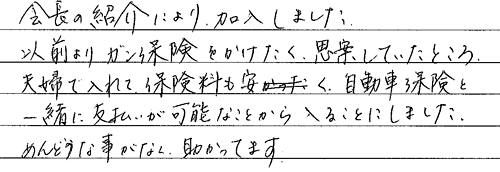 会長の紹介により、加入しました。
以前よりガン保険をかけたく、思案していたところ、
夫婦で入れて、保険料も安く、自動車保険と
一緒に支払いが可能なことから入ることにしました。
めんどうな事がなく、助かってます。